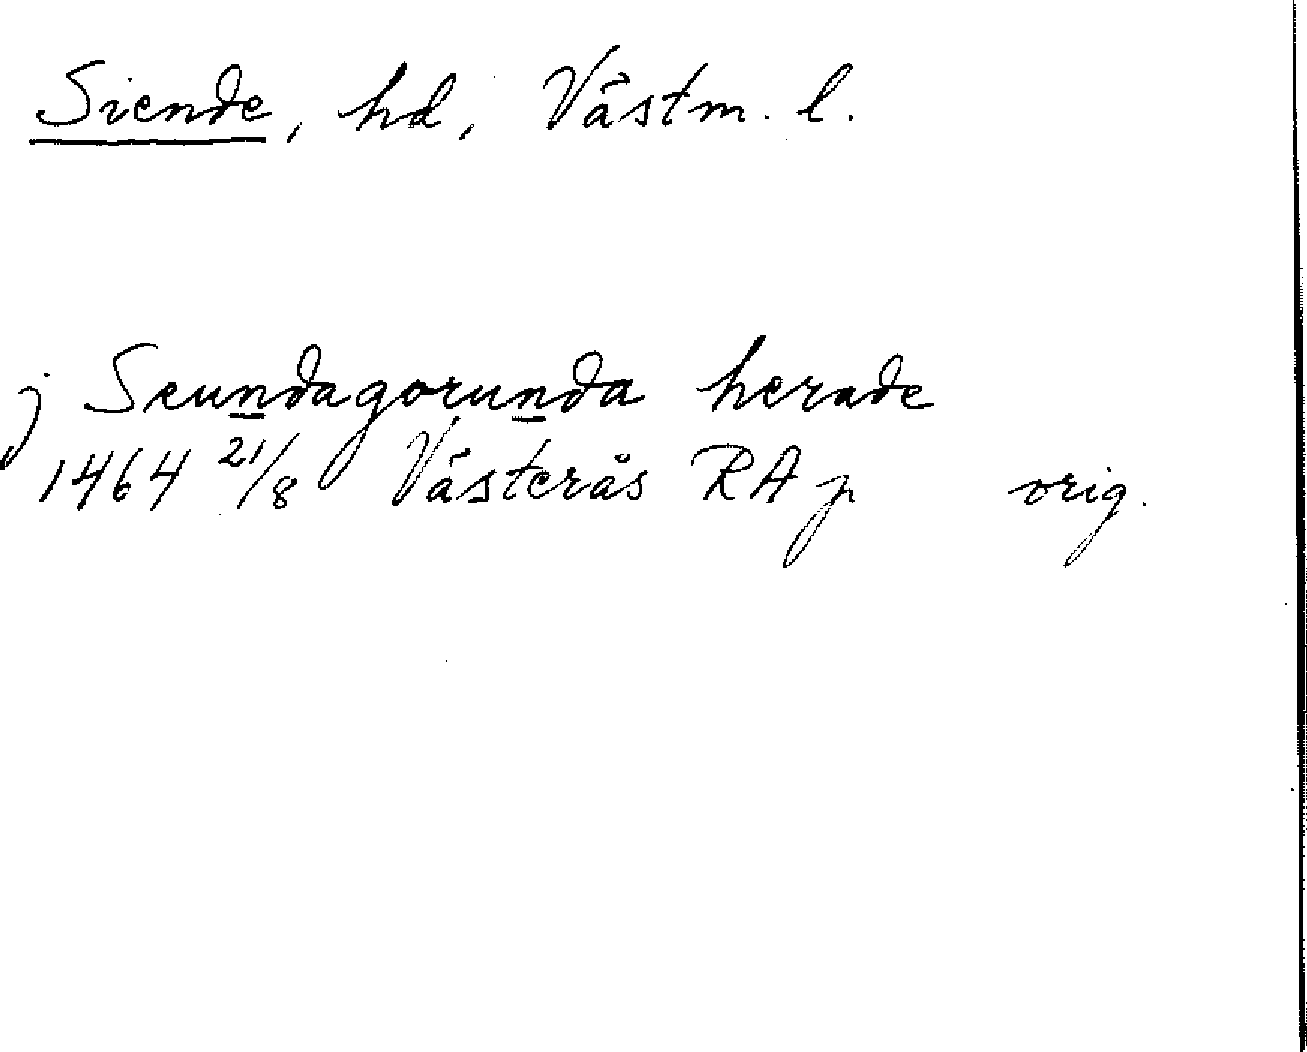 Siende, hd, Västm. l.
j Seundagorunda herade
1464 21/8 Västerås RAp orig.